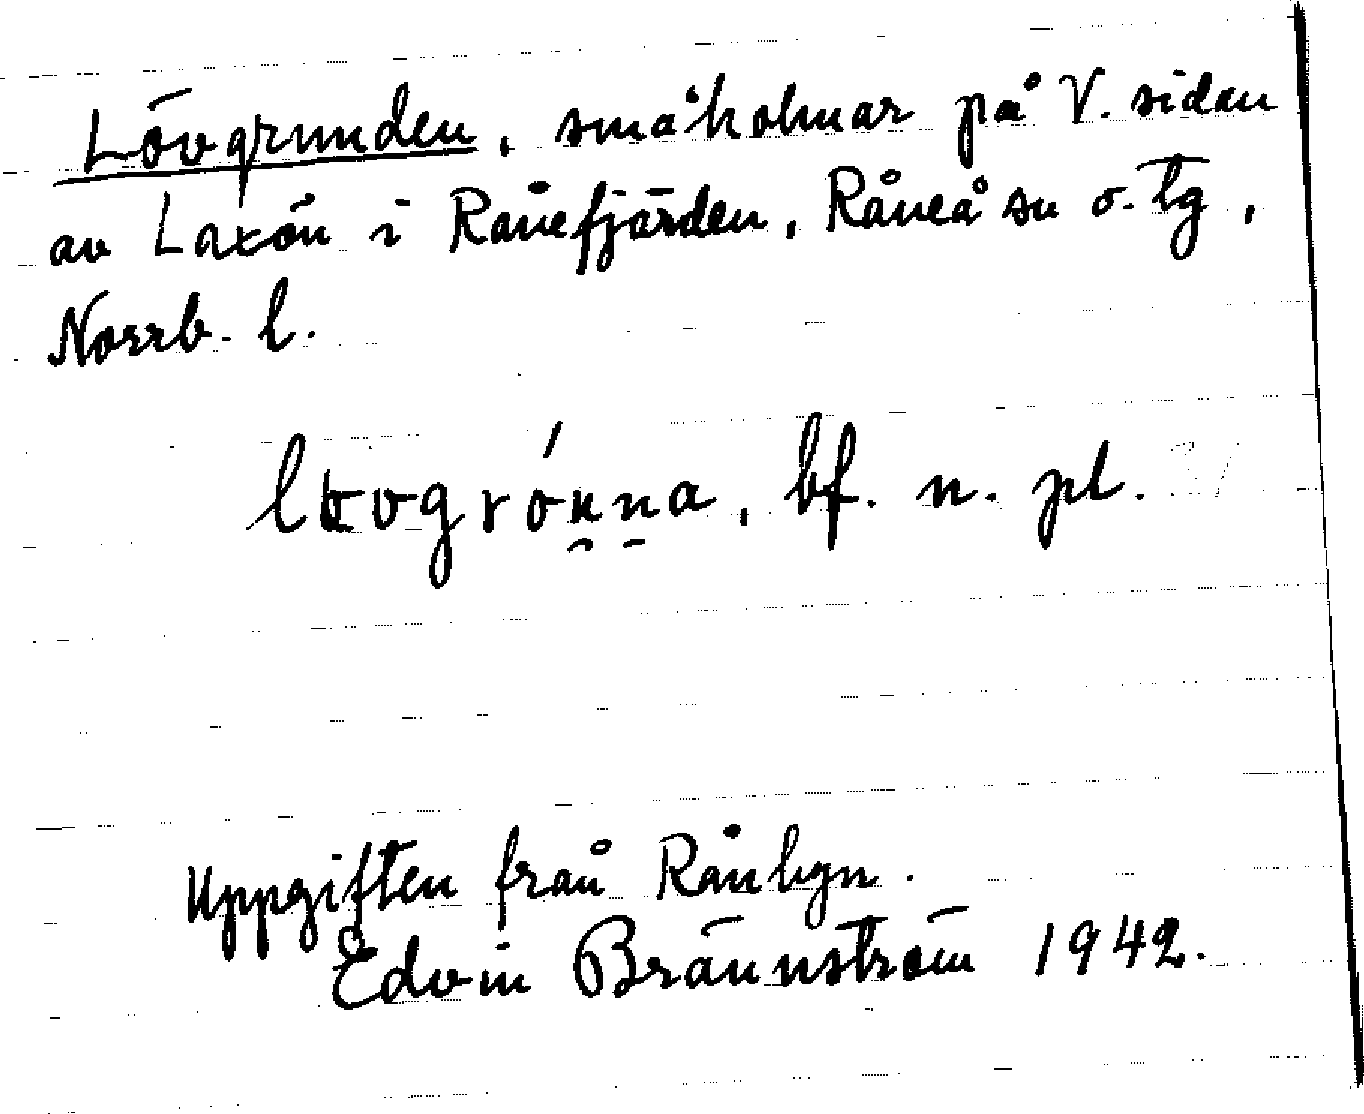 Lövgrunden, småholmar på V. sidan
av Laxön i Rånefjärden, Råneå sn o. tg,
Norrb. l.
bf. n. pl.
Uppgiften från Rånbyn.
Edvin Brännström 1942.